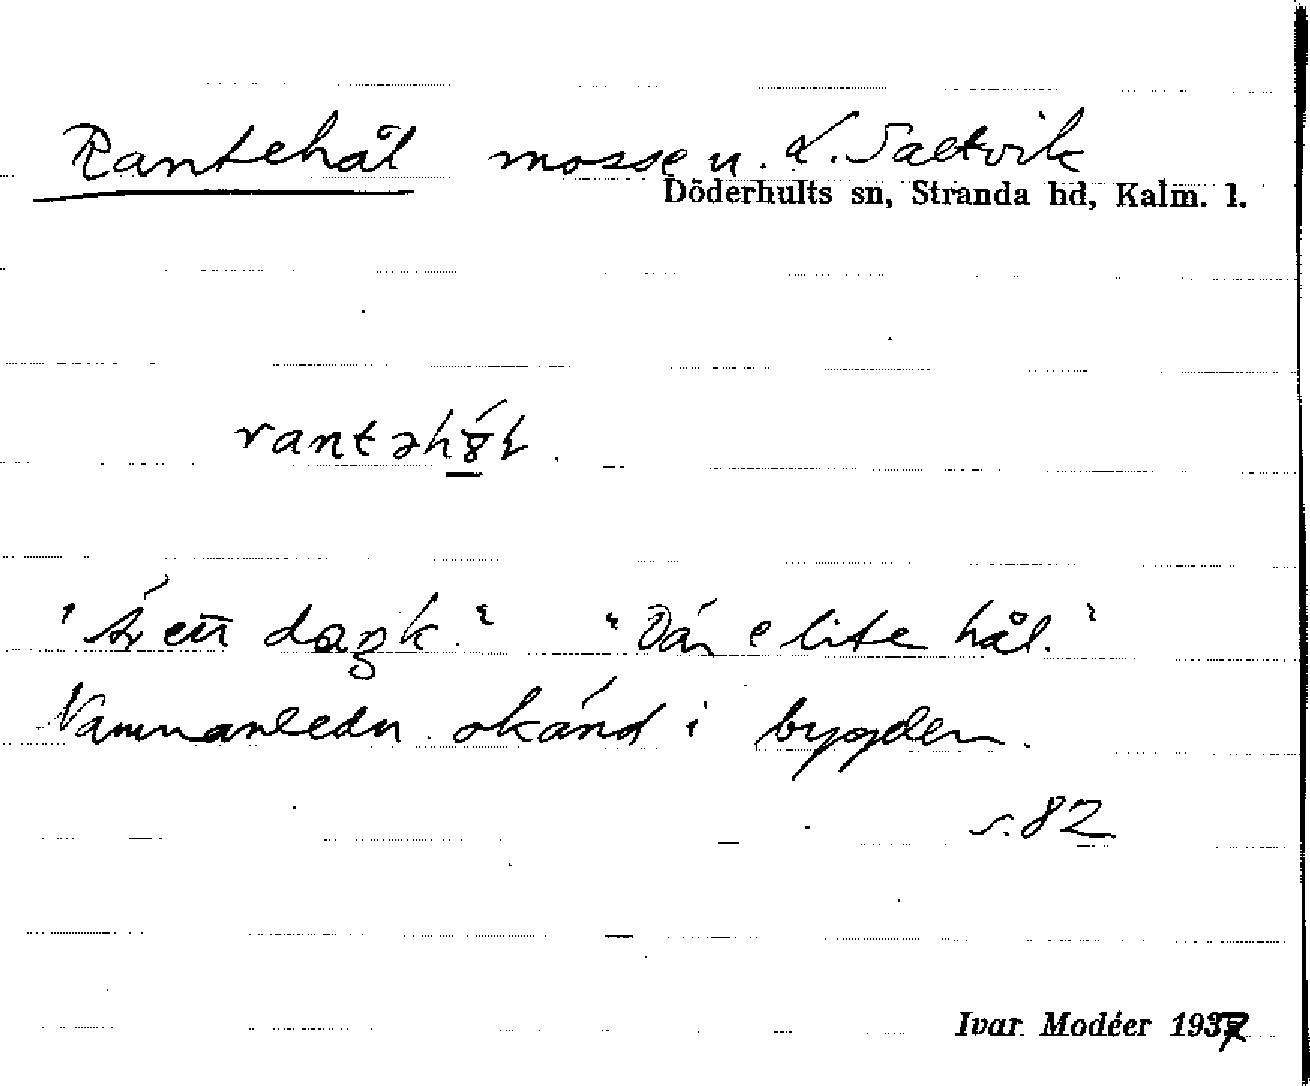 Rantehål mosse u. L. Saltvik
Döderhults sn, Stranda hd, Kalm. l.
"Är en dank." "Där e lite hål."
Namnanledn. okänd i bygden.
s. 82
Ivar Modéer 1937